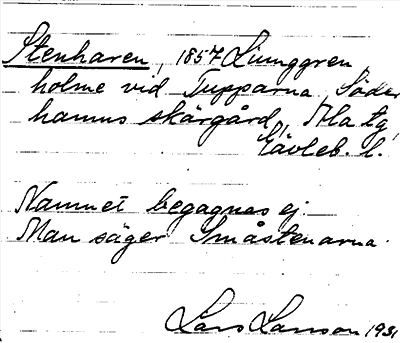 Stenharen, 1857 Ljunggren
holme vid Tupparna, Söder
hamns skärgård, Ala tg,
Gävleb. l.
Namnet begagnas ej.
Man säger Småstenarna.
Lars Larsson 1931